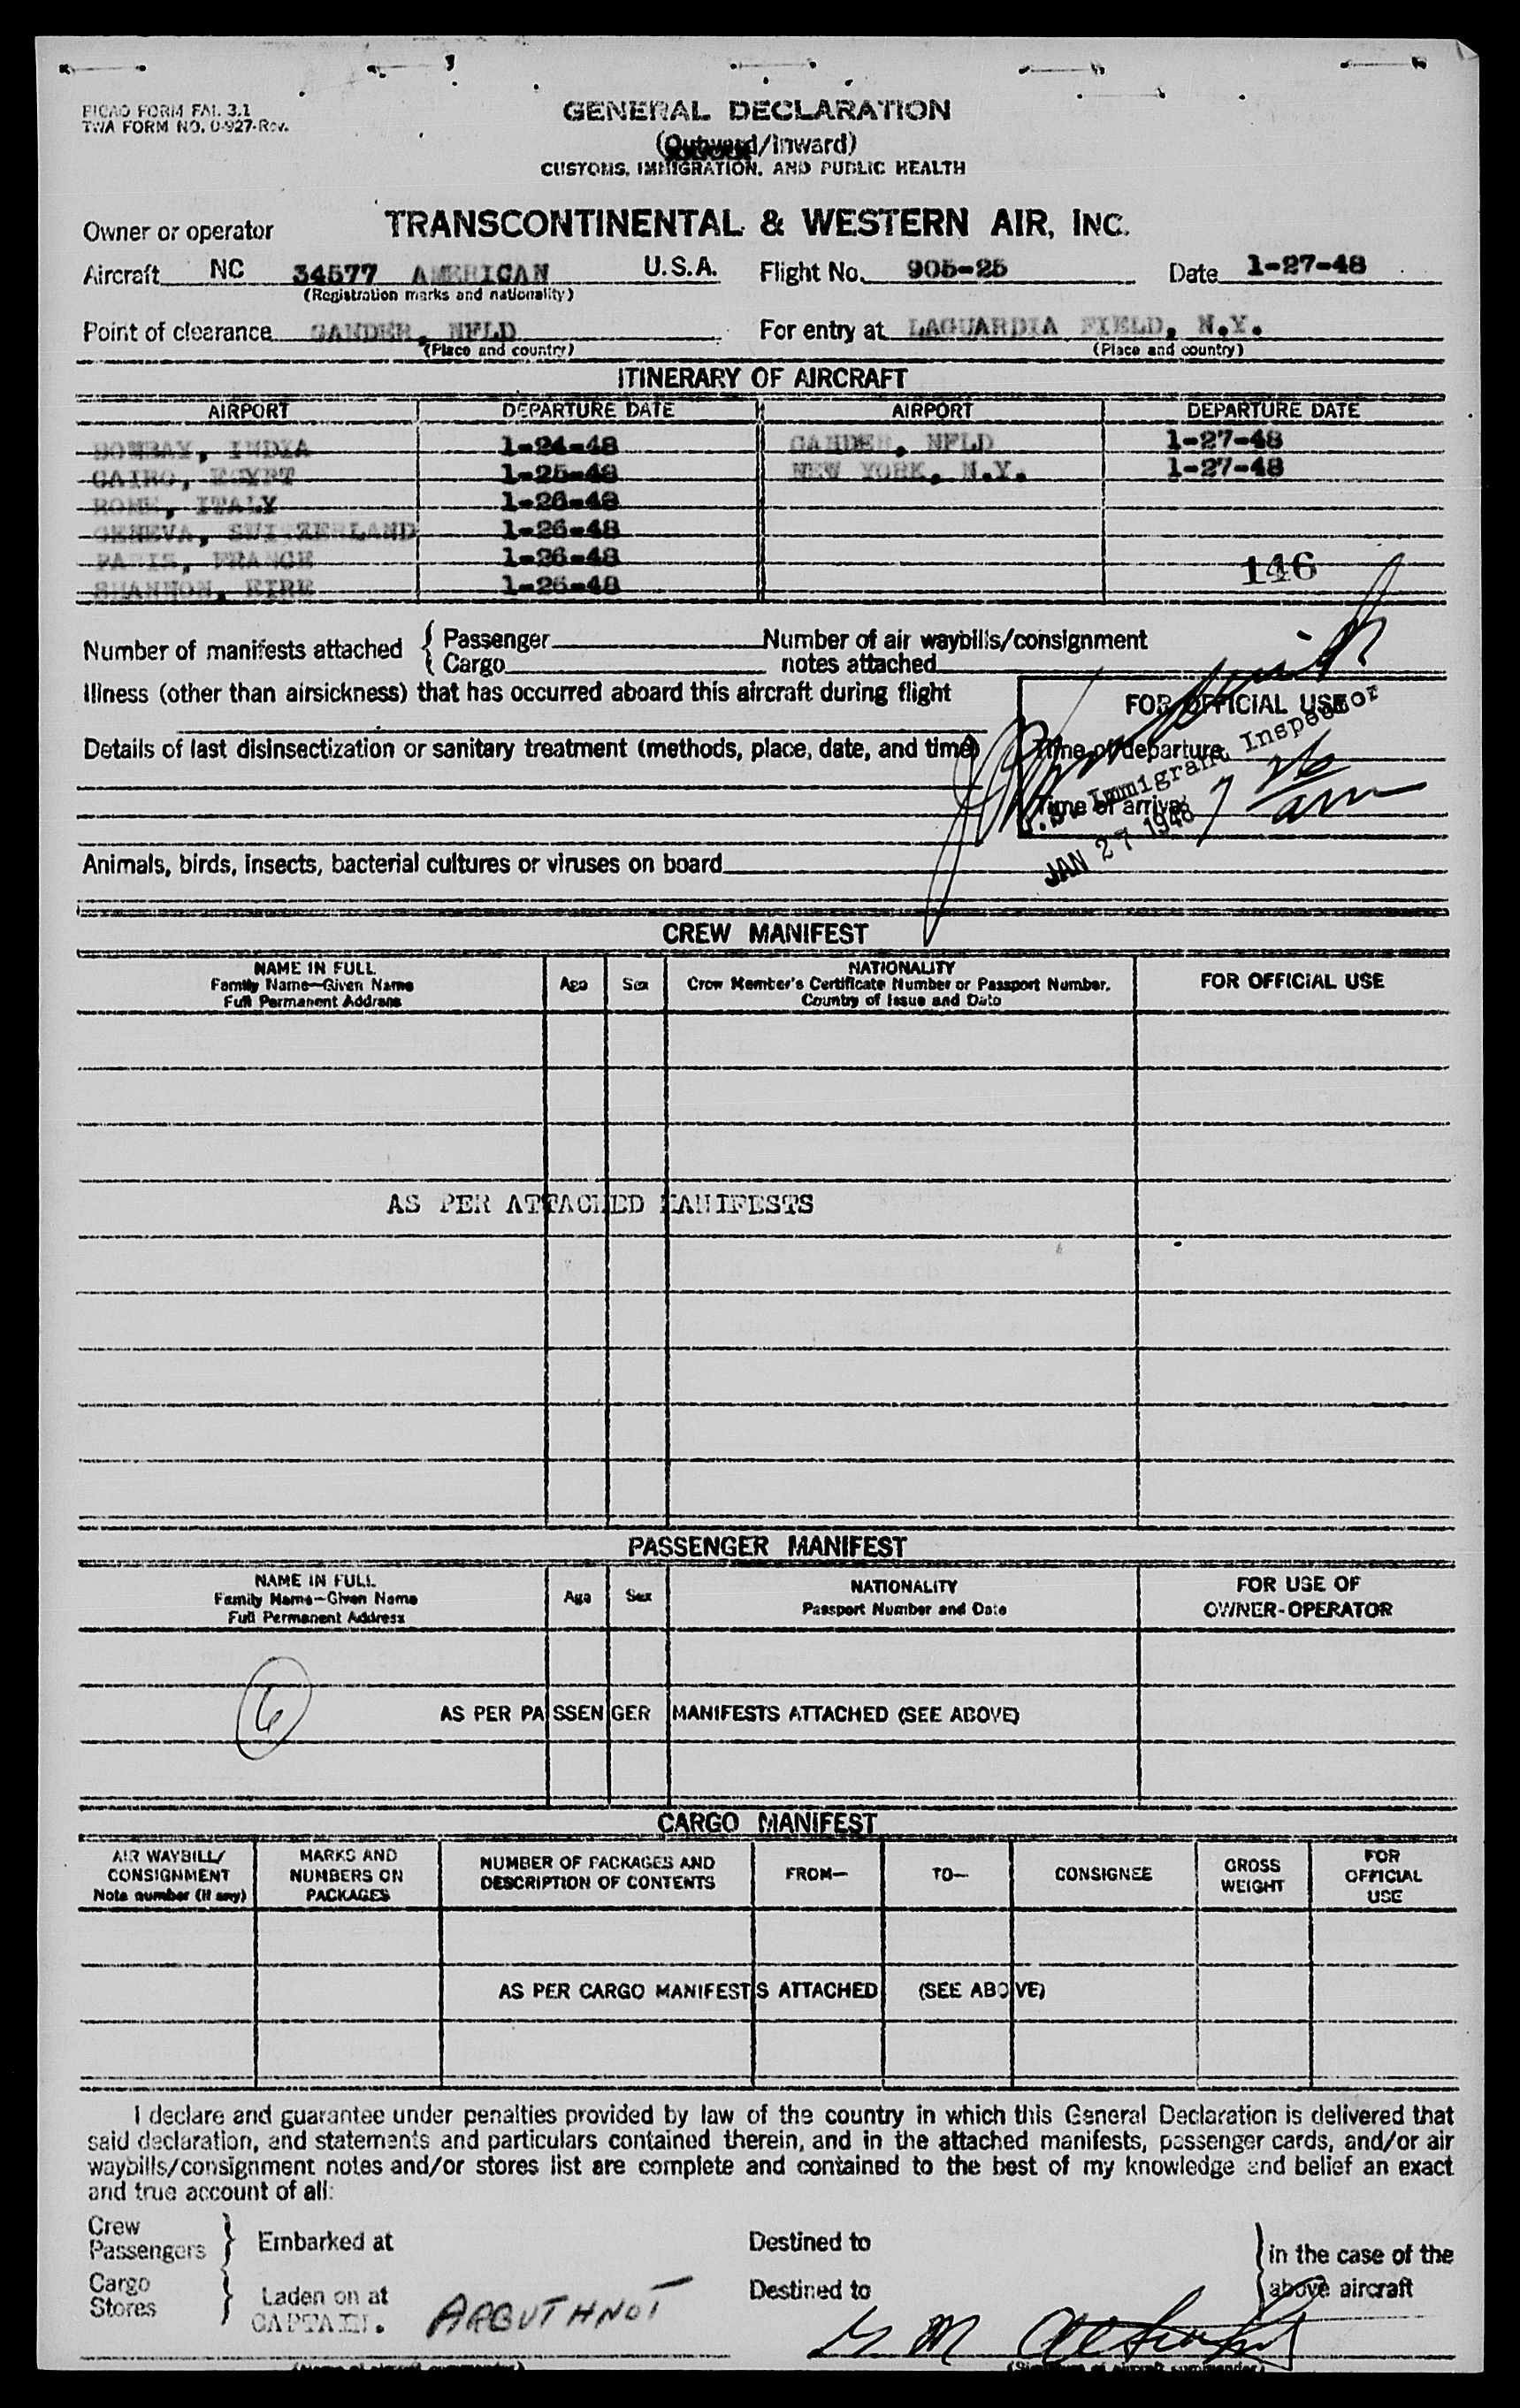 PICAO FORM FAL 3.1
TWA FORM NO. 0-927-Rev.
GENERAL DECLARATION
(Outward/Inward)
CUSTOMS, IMMIGRATION, AND PUBLIC HEALTH
Owner or operator TRANSCONTINENTAL & WESTERN AIR, INC.
Aircraft NC 34577 AMERICAN U.S.A. Flight No. 905-25 Date 1-27-48
(Registration marks and nationality)
Point of clearance GANDER, NFLD For entry at LAGUARDIA FIELD, N.Y.
(Place and country) (Place and country)
ITINERARY OF AIRCRAFT
AIRPORT DEPARTURE DATE AIRPORT DEPARTURE DATE
BOMBAY, INDIA 1-24-48 GANDER, NFLD 1-27-48
CAIRO, EGYPT 1-25-48 NEW YORK, N.Y. 1-27-48
ROME, ITALY 1-26-48
GENEVA, SWITZERLAND 1-26-48
PARIS, FRANCE 1-26-48
SHANNON, EIRE 1-26-48
146
Number of manifests attached { Passenger Number of air waybills/consignment
Cargo notes attached
Illness (other than airsickness) that has occurred aboard this aircraft during flight
FOR OFFICIAL USE
Details of last disinsectization or sanitary treatment (methods, place, date, and time)
Time of departure
Time of arrival
U.S. Immigrant Inspector
JAN 27 1948
7 am
Animals, birds, insects, bacterial cultures or viruses on board
CREW MANIFEST
NAME IN FULL
Family Name—Given Name
Full Permanent Address
Age Sex
NATIONALITY
Crew Member's Certificate Number or Passport Number,
Country of Issue and Date
FOR OFFICIAL USE
AS PER ATTACHED MANIFESTS
PASSENGER MANIFEST
NAME IN FULL
Family Name—Given Name
Full Permanent Address
Age Sex
NATIONALITY
Passport Number and Date
FOR USE OF
OWNER-OPERATOR
6
AS PER PASSENGER MANIFESTS ATTACHED (SEE ABOVE)
CARGO MANIFEST
AIR WAYBILL/
CONSIGNMENT
Note number (if any)
MARKS AND
NUMBERS ON
PACKAGES
NUMBER OF PACKAGES AND
DESCRIPTION OF CONTENTS
FROM—
TO—
CONSIGNEE
GROSS
WEIGHT
FOR
OFFICIAL
USE
AS PER CARGO MANIFESTS ATTACHED (SEE ABOVE)
I declare and guarantee under penalties provided by law of the country in which this General Declaration is delivered that
said declaration, and statements and particulars contained therein, and in the attached manifests, passenger cards, and/or air
waybills/consignment notes and/or stores list are complete and contained to the best of my knowledge and belief an exact
and true account of all:
Crew
Passengers } Embarked at Destined to } in the case of the
Cargo
Stores } Laden on at Destined to above aircraft
CAPTAIN. ARBUTHNOT
(Name of aircraft commander) (Signature of aircraft commander)